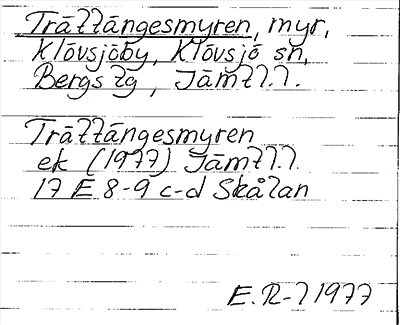 Trättängesmyren, myr,
Klövsjöby, Klövsjö sn,
Bergs tg, Jämtl.l.
Trättängesmyren
ek (1977) Jämtl.l.
17 E 8-9 c-d Skålan
E.R-l 1977